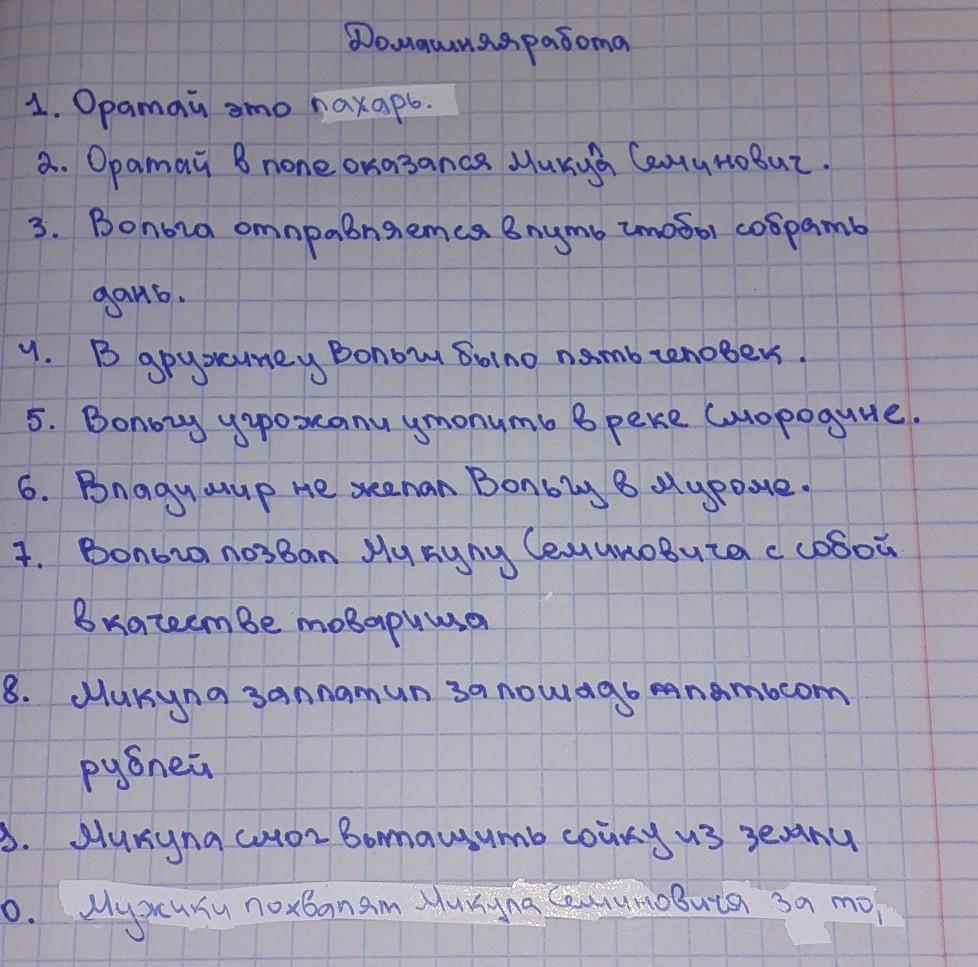 Домашняя работа
1. Оратай это пахарь.
2. Оратай в поле оказался Микула Семинович.
3. Вольга отправляется в путь чтобы собрать
дань.
4. В дружине у Вольги было пять человек.
5. Вольгу угрожали утопить в реке Смородине.
6. Владимир не желал Вольгу в Муроме.
7. Вольга позвал Микулу Семиновича с собой
в качестве товарища
8. Микула заплатил за лошадь пятьсот
рублей
9. Микула смог вытащить сойку из земли
0. Мужики похвалят Микула Семиновичя за то,